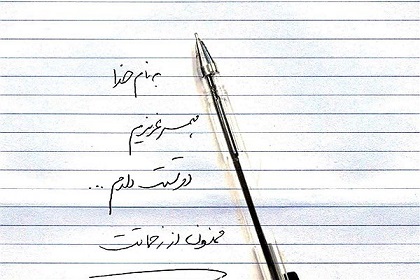 به نام خدا
همسر عزیزم
دوستت دارم ...
ممنون از زحماتت